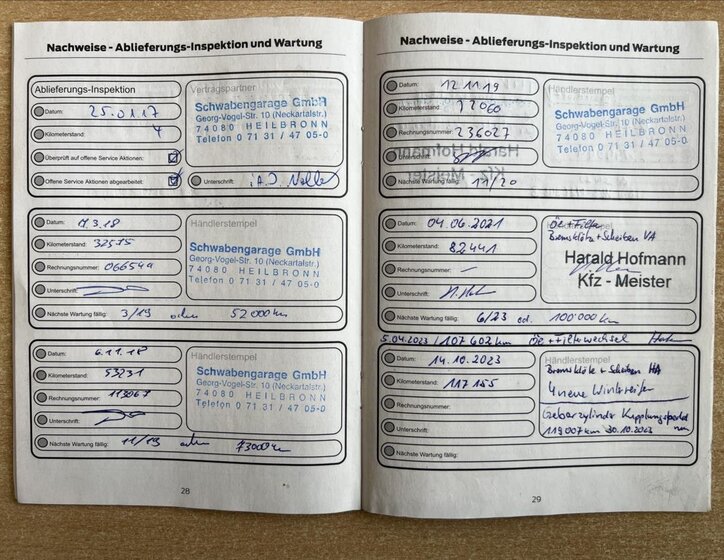 Nachweise - Ablieferungs-Inspektion und Wartung
Ablieferungs-Inspektion
Datum: 25.01.17
Kilometerstand: 4
Überprüft auf offene Service Aktionen:
Offene Service Aktionen abgearbeitet:
Vertragspartner
Schwabengarage GmbH
Georg-Vogel-Str. 10 (Neckartalstr.)
74080 HEILBRONN
Telefon 0 71 31 / 47 05-0
Unterschrift: i.A.
Datum: 7.3.18
Kilometerstand: 32515
Rechnungsnummer:
Unterschrift:
Händlerstempel
Schwabengarage GmbH
Georg-Vogel-Str. 10 (Neckartalstr.)
74080 HEILBRONN
Telefon 0 71 31 / 47 05-0
Nächste Wartung fällig: 3/19 oder 52000 km
Datum: 6.11.18
Kilometerstand: 53231
Rechnungsnummer: 113067
Unterschrift:
Händlerstempel
Schwabengarage GmbH
Georg-Vogel-Str. 10 (Neckartalstr.)
74080 HEILBRONN
Telefon 0 71 31 / 47 05-0
Nächste Wartung fällig: 11/19 oder 73000 km
28
Nachweise - Ablieferungs-Inspektion und Wartung
Datum: 12.11.19
Kilometerstand:
Rechnungsnummer: 236027
Unterschrift:
Händlerstempel
Schwabengarage GmbH
Georg-Vogel-Str. 10 (Neckartalstr.)
74080 HEILBRONN
Telefon 0 71 31 / 47 05-0
Nächste Wartung fällig: 11/20
Datum: 04.06.2021
Kilometerstand: 82441
Rechnungsnummer: –
Unterschrift:
Händlerstempel
Öl + Filter
Bremsklötze + Scheiben VA
Harald Hofmann
Kfz - Meister
Nächste Wartung fällig: 6/23 od. 100'000 km
5.04.2023 / 107602 km Öl + Filterwechsel
Datum: 14.10.2023
Kilometerstand: 117155
Rechnungsnummer:
Unterschrift:
Händlerstempel
Bremsklötze + Scheiben HA
4 neue Winterreifen
Geberzylinder Kupplungspedal
119007 km 30.10.2023 neu
Nächste Wartung fällig:
29